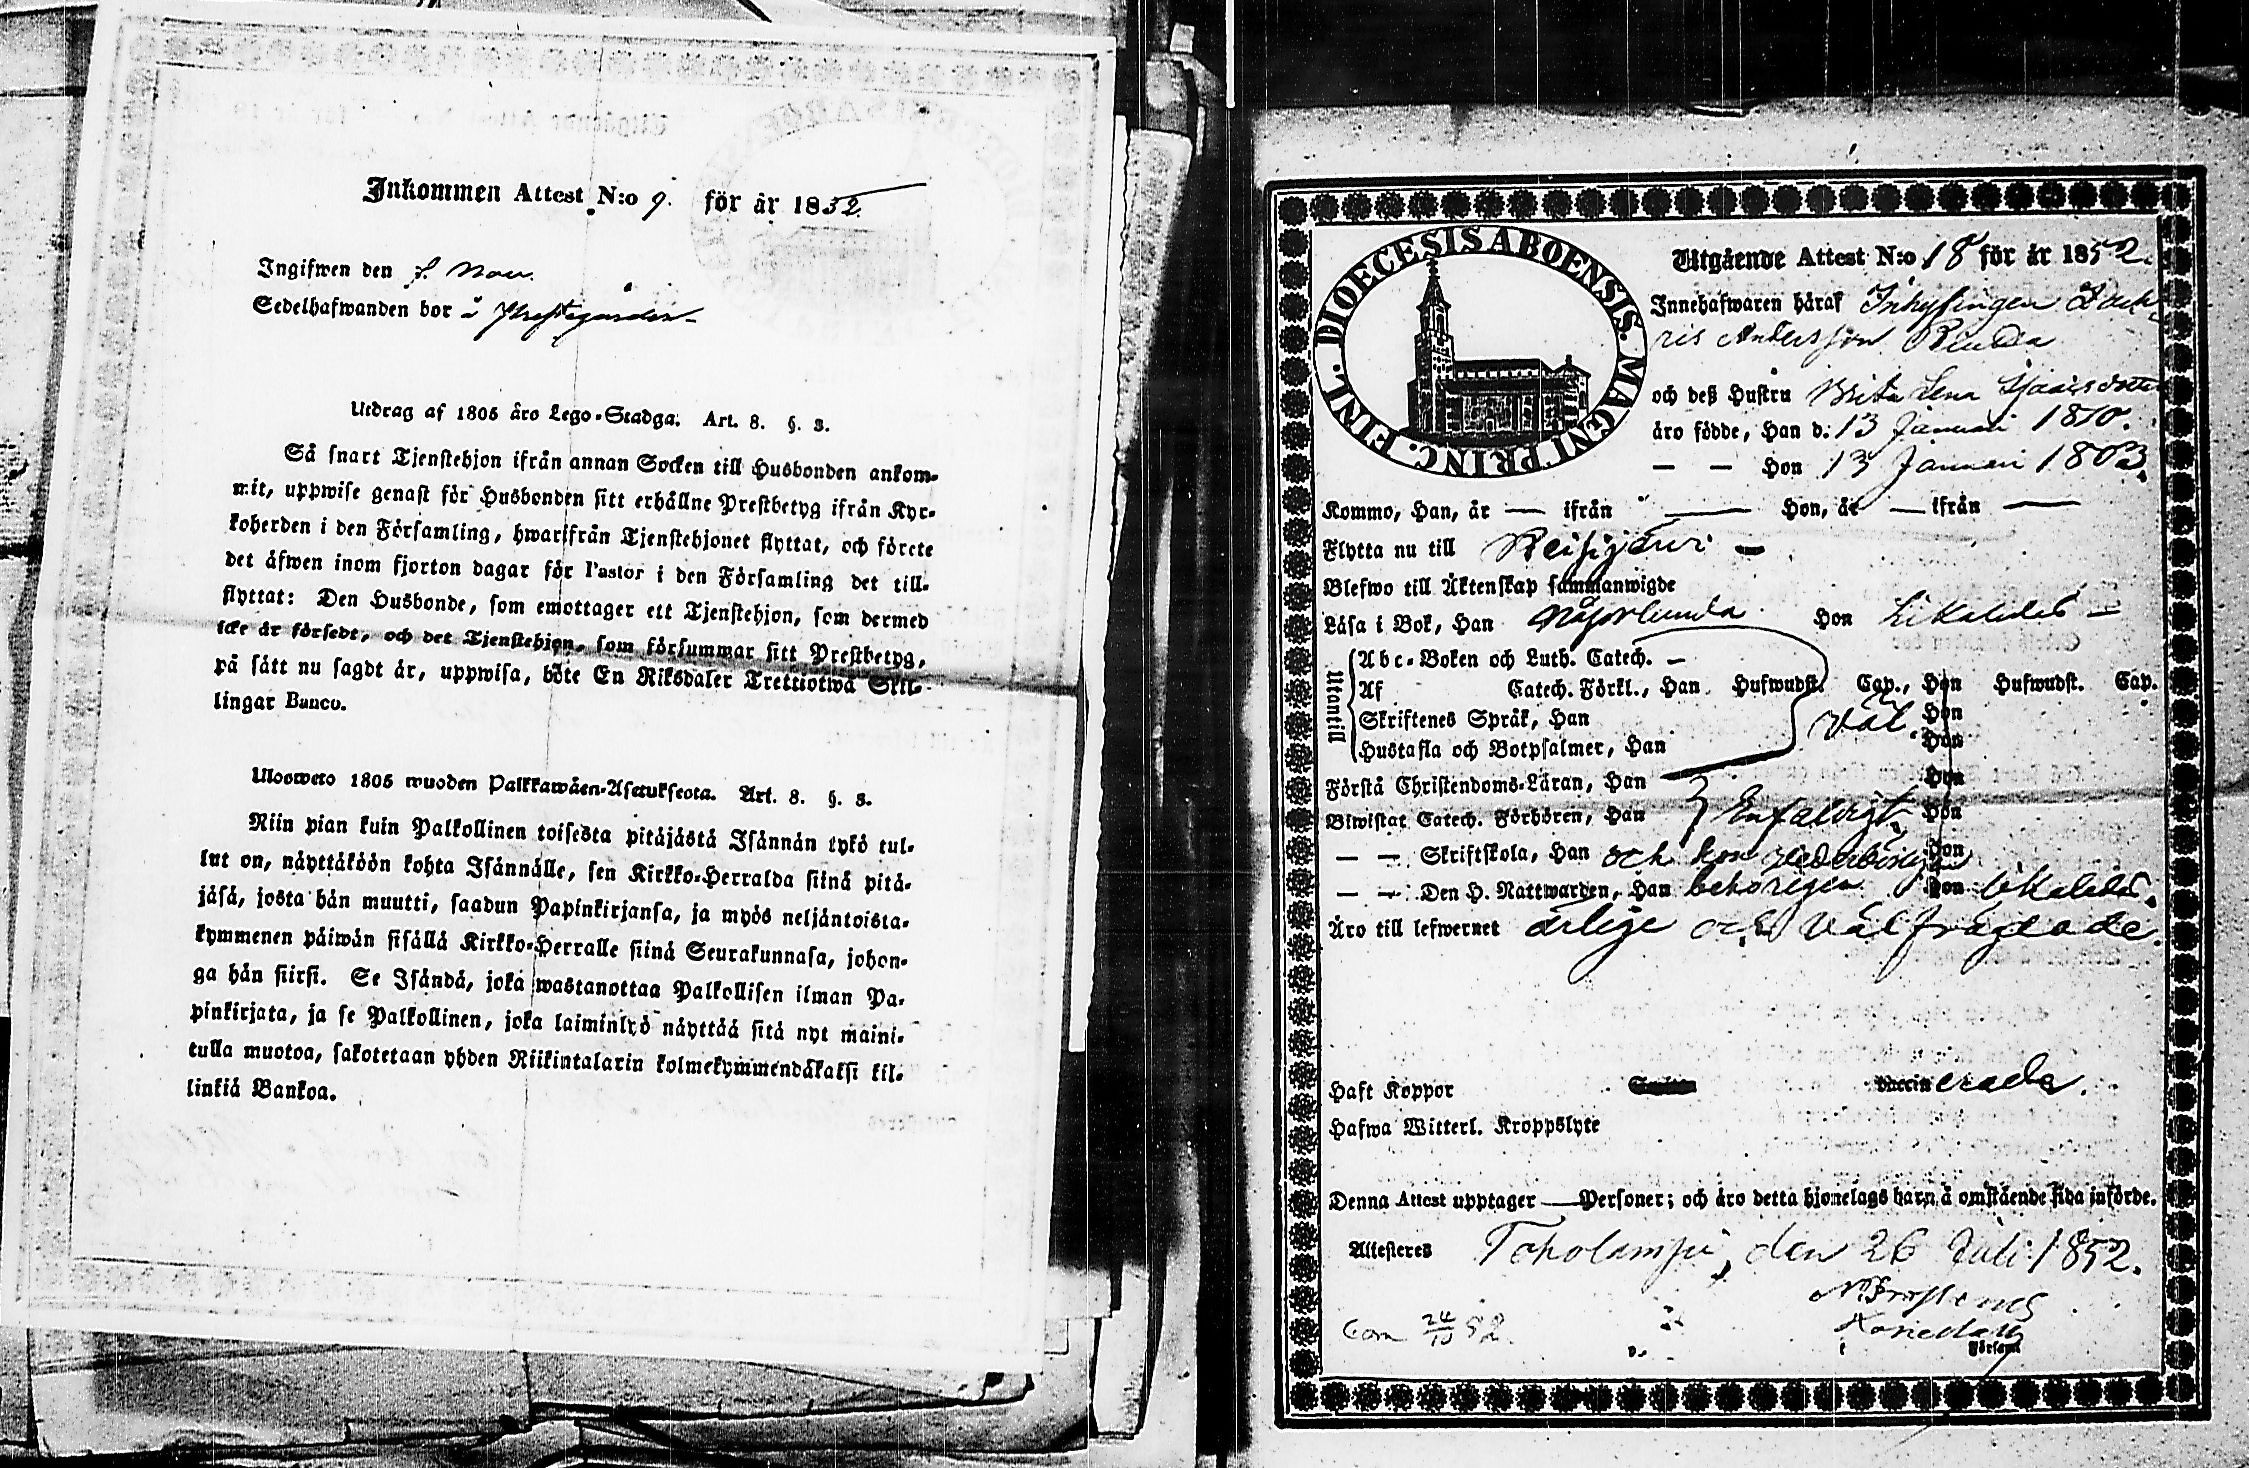 Inkommen Attest N:o 9. för år 1852.
Ingifwen den 7. Nov.
Sedelhafwanden bor å Prestgården
Utdrag af 1805 års Lego-Stadga. Art. 8. §. 3.
Så snart Tjenstehjon ifrån annan Socken till Husbonden ankom-
mit, uppwise genast för Husbonden sitt erhållne Prestbetyg ifrån Kyr-
koherden i den Församling, hwarifrån Tjenstehjonet flyttat, och förete
det äfwen inom fjorton dagar för Pastor i den Församling det till-
flyttat: Den Husbonde, som emottager ett Tjenstehjon, som dermed
icke är försedt, och det Tjenstehjon, som försummar sitt Prestbetyg,
på sätt nu sagdt är, uppwisa, böte En Riksdaler Trettiotwå Skil-
lingar Banco.
Ulosweto 1805 wuoden Palkkawäen-Asetuksesta. Art. 8. §. 3.
Niin pian kuin Palkollinen toisesta pitäjästä Isännän tykö tul-
lut on, näyttäköön kohta Isännälle, sen Kirkko-Herralda siinä pitä-
jäsä, josta hän muutti, saadun Papinkirjansa, ja myös neljäntoista-
kymmenen päiwän sisällä Kirkko-Herralle siinä Seurakunnasa, johon-
ga hän siirsi. Se Isändä, joka wastanottaa Palkollisen ilman Pa-
pinkirjata, ja se Palkollinen, joka laiminlyö näyttää sitä nyt maini-
tulla muotoa, sakotetaan yhden Riikintalarin kolmekymmendäkaksi kil-
linkiä Bankoa.
DIOECESIS ABOENSIS. MAGNI PRINC. FINL.
Utgående Attest N:o 18 för år 1852.
Innehafwaren häraf Inhysingen Zach-
ris Andersson Rinda
och deß Hustru Brita Lena Isaacsdotter
äro födde, Han d. 13 Januari 1810.
— — Hon 13 Januari 1803.
Kommo, Han, år — ifrån — Hon, år — ifrån —
Flytta nu till Reisjärvi —
Blefwo till Äktenskap sammanwigde
Läsa i Bok, Han någorlunda Hon likaledes —
Utantill
Abc-Boken och Luth. Catech. —
Af Catech. Förkl., Han Hufwudst. Cap., Hon Hufwudst. Cap.
Skriftenes Språk, Han väl. Hon
Hustafla och Botpsalmer, Han Hon
Första Christendoms-Läran, Han Hon
Biwistat Catech. Förhören, Han Enfaldigt Hon
— — Skriftskola, Han och Hon
— — Den H. Nattwarden, Han behörigen Hon likaledes.
Äro till lefwernet ärlige och välfrägdade.
Haft Koppor Vaccinerade.
Hafwa Witterl. Kroppslyte
Denna Attest upptager — Personer; och äro detta hjonelags barn å omstående sida införde.
Attesteras Toholampi, den 26 Juli 1852.
N. Frosterus
Com 24/10 52.
i Församl